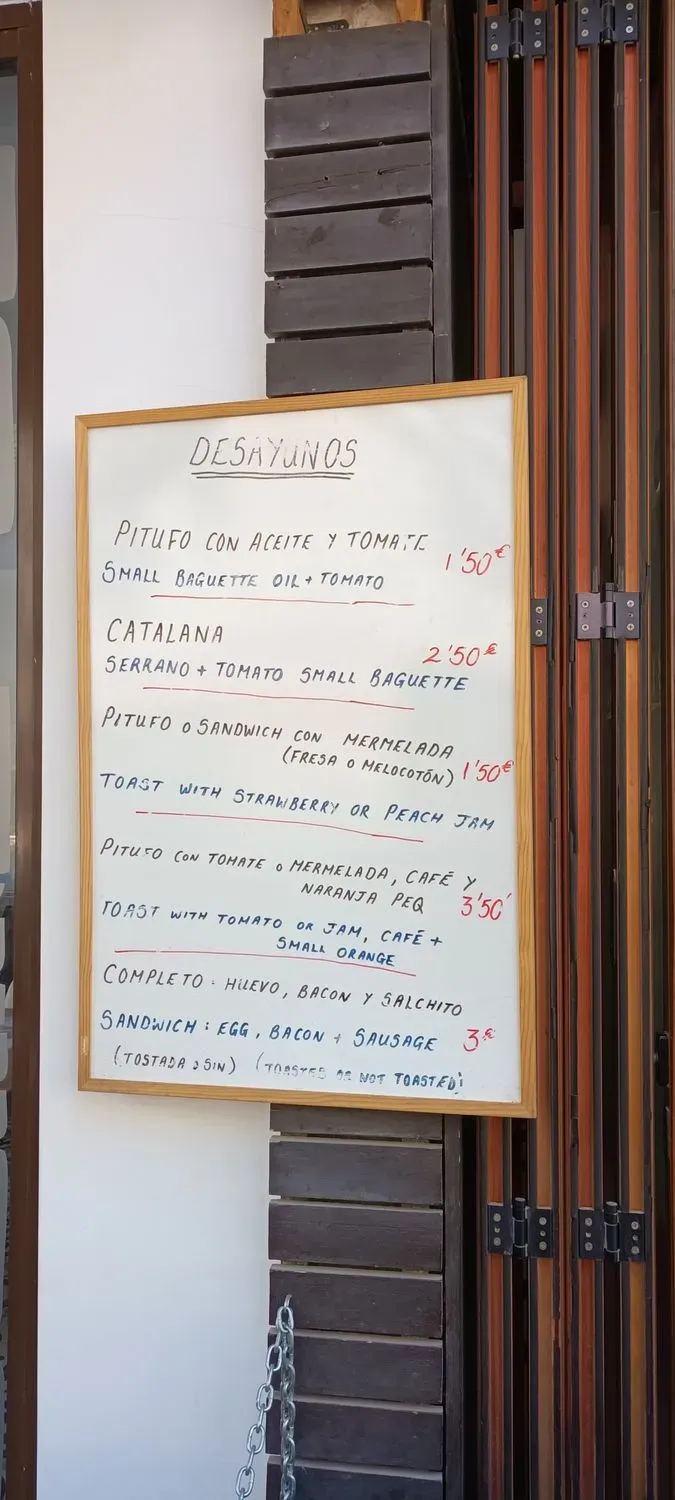 DESAYUNOS
PITUFO CON ACEITE Y TOMATE
1'50€
SMALL BAGUETTE OIL + TOMATO
CATALANA
2'50€
SERRANO + TOMATO SMALL BAGUETTE
PITUFO O SANDWICH CON MERMELADA
(FRESA O MELOCOTÓN) 1'50€
TOAST WITH STRAWBERRY OR PEACH JAM
PITUFO CON TOMATE O MERMELADA, CAFÉ Y
NARANJA PEQ 3'50
TOAST WITH TOMATO OR JAM, CAFÉ +
SMALL ORANGE
COMPLETO: HUEVO, BACON Y SALCHITO
SANDWICH: EGG, BACON + SAUSAGE 3€
(TOSTADA O SIN) (TOASTED OR NOT TOASTED)